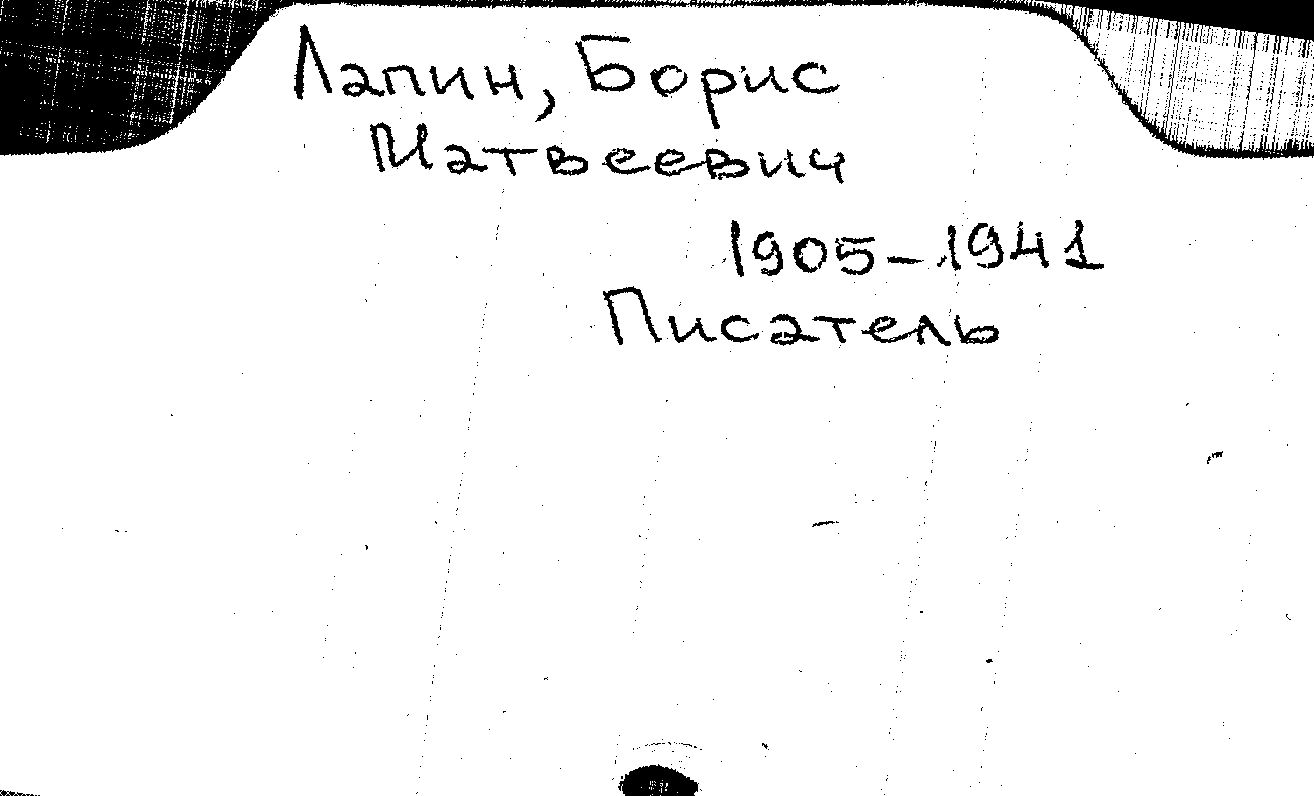 Лапин, Борис
Матвеевич
1905-1941
Писатель